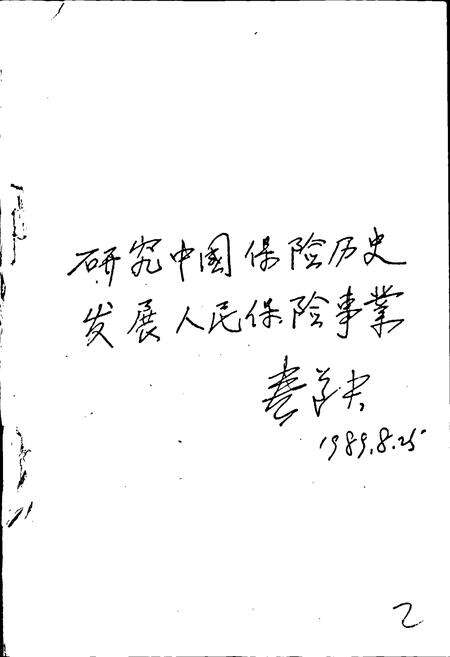 研究中国保险历史
发展人民保险事業
1989.8.25
2